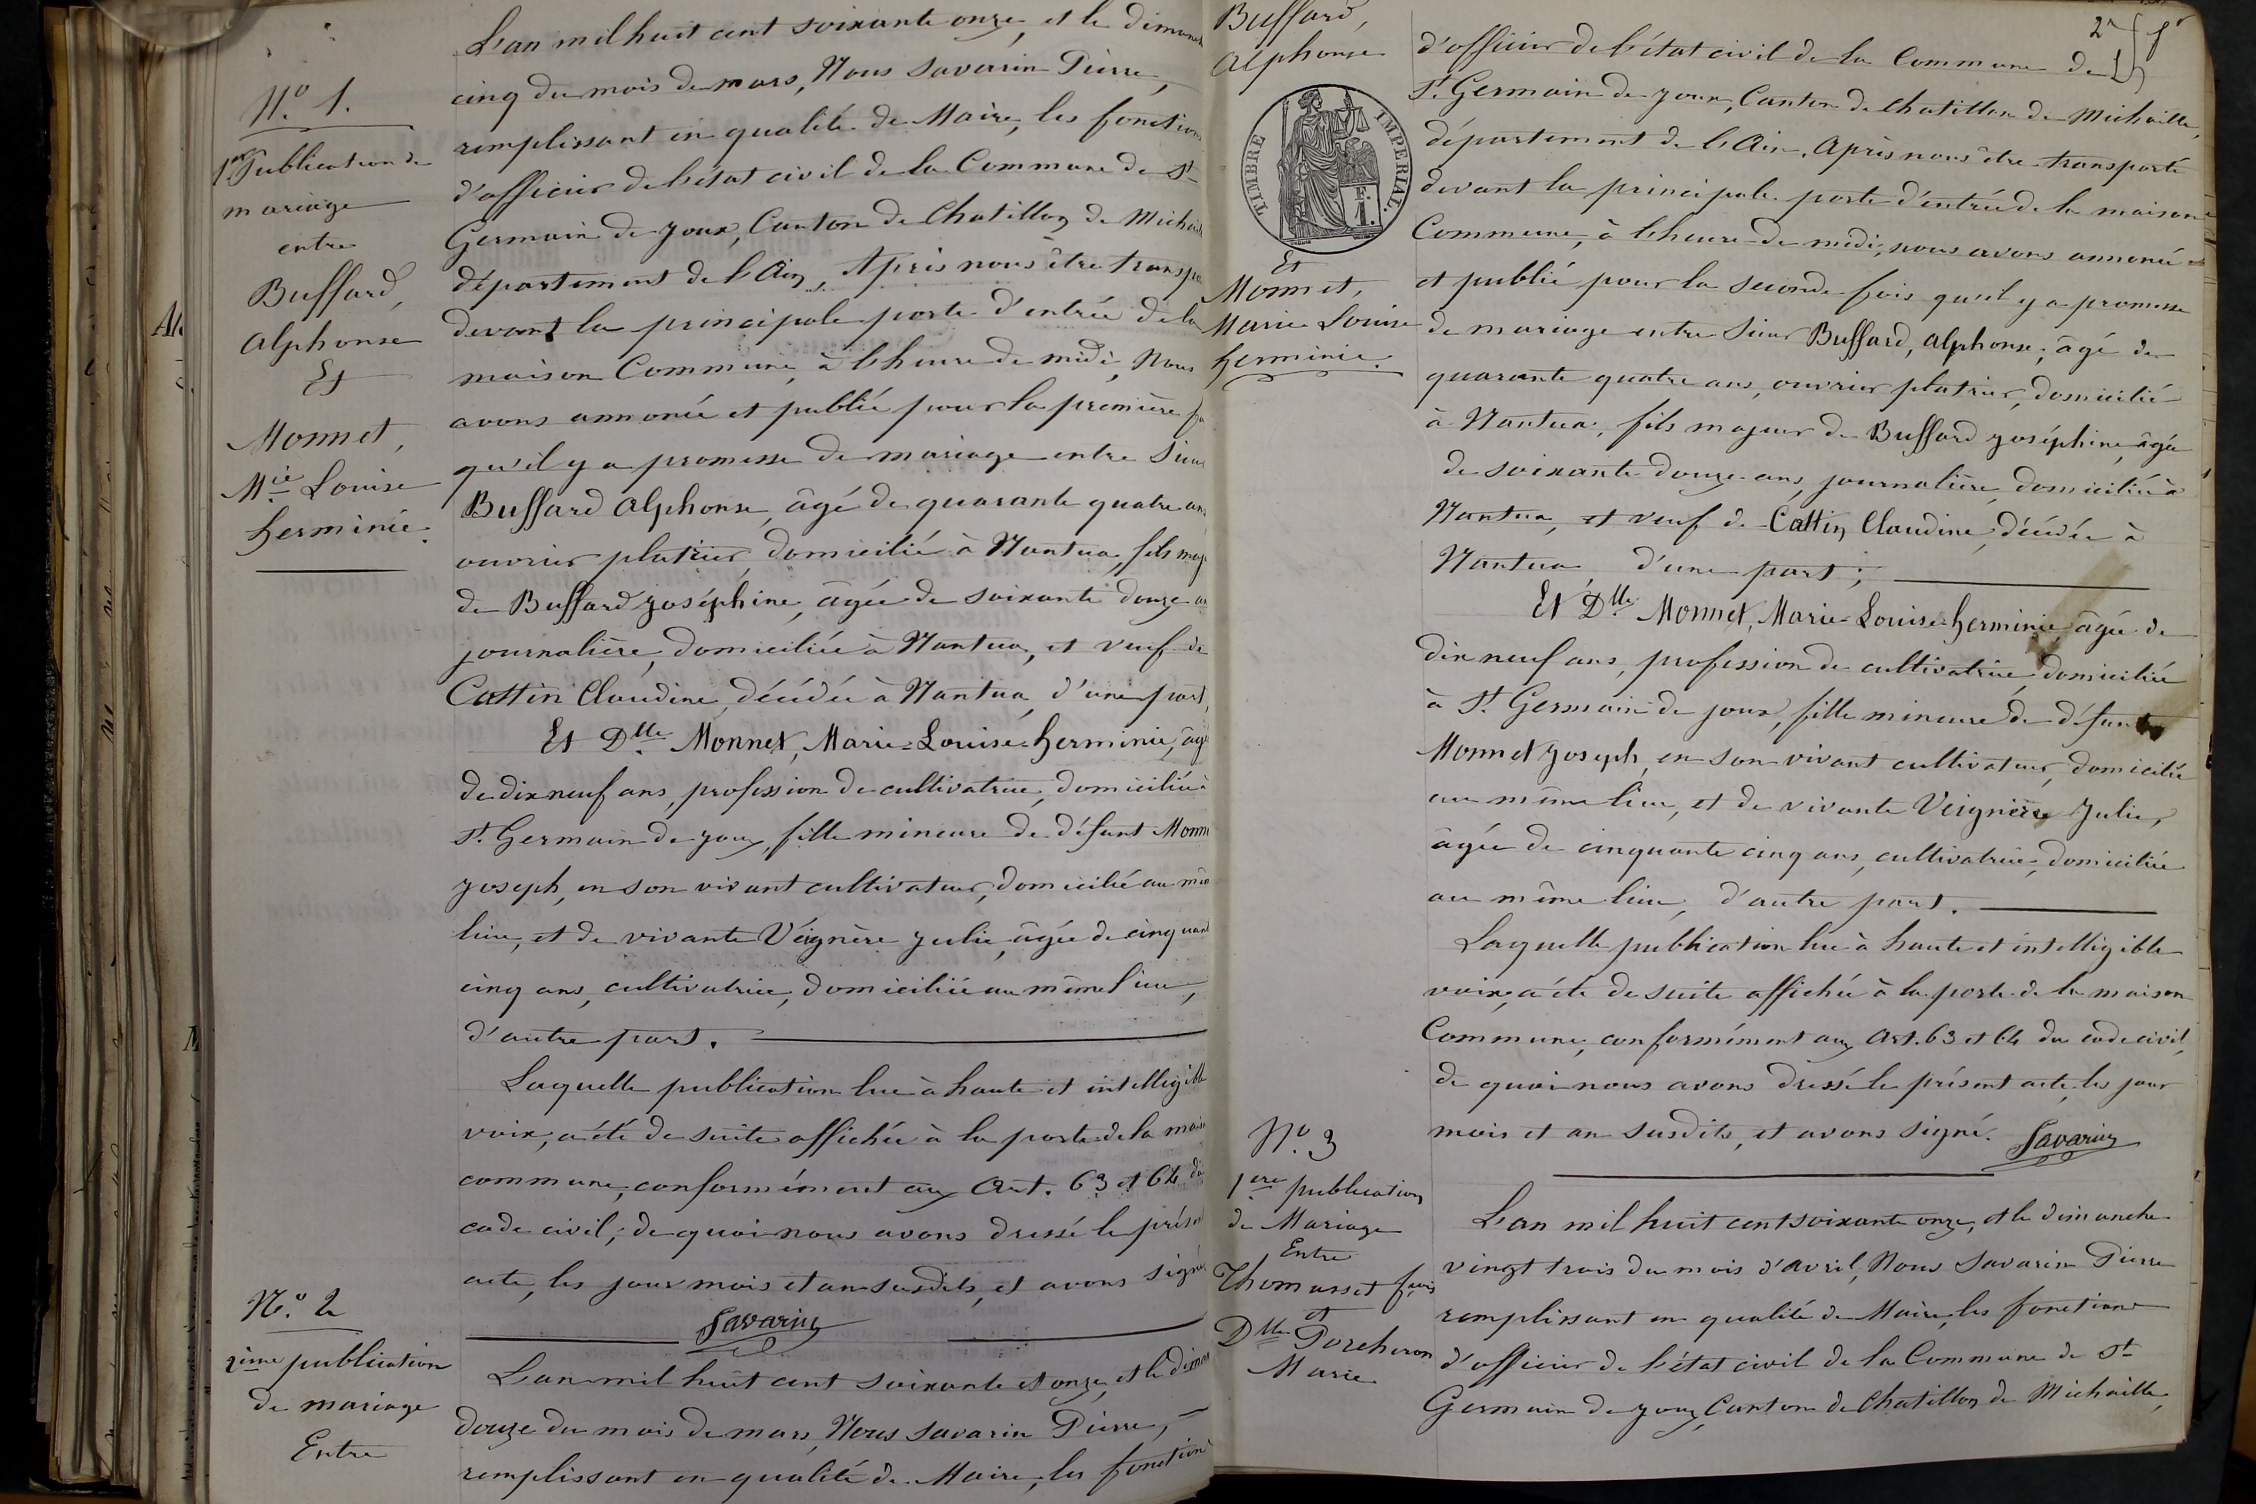 N.o 1.
1ere Publication de
mariage
entre
Buffard,
Alphonse
Et
Monnet,
Mie Louise
herminie.
L'an mil huit cent soixante onze, et le dimanch
cinq du mois de mars, Nous Savarin Pierre,
remplissant en qualité de Maire, les fonction
d'officier de l'état civil de la Commune de St
Germain de Joux, Canton de Chatillon de Michail
département de l'Ain, Après nous être transpo
devant la principale porte d'entrée de la
maison Commune, à l'heure de midi, Nous
avons annoncé et publié pour la première fo
qu'il y a promesse de mariage entre Sieur
Buffard Alphonse, âgé de quarante quatre ans
ouvrier platrier, domicilié à Nantua, fils maj
de Buffard Joséphine, âgée de soixante douze a
journalière, domiciliée à Nantua, et veuf de
Cattin Claudine, décédée à Nantua, d'une part,
Et Dlle Monnet, Marie-Louise-herminie, âg
de dix neuf ans, profession de cultivatrice, domiciliée à
St Germain de Joux, fille mineure de défunt Monn
Joseph, en son vivant cultivateur, domicilié au mêm
lieu, et de vivante Veignère Julie, âgée de cinquant
cinq ans, cultivatrice, domiciliée au même lieu,
d'autre part.
Laquelle publication lue à haute et intelligible
voix, a été de suite affichée à la porte de la mais
commune, conformément aux Art. 63 et 64 du
code civil; de quoi nous avons dressé le présen
acte, les jour mois et an susdits, et avons signé
Savarin
N.o 2
2ème publication
de mariage
Entre
L'an mil huit cent soixante et onze, et le diman
douze du mois de mars, Nous Savarin Pierre,
remplissant en qualité de Maire, les fonction
Buffard,
Alphonse
TIMBRE IMPERIAL.
F.
1.
Et
Monnet,
Marie Louise
herminie.
2e
d'officier de l'état civil de la Commune de
St Germain de Joux, Canton de Chatillon de Michaille,
département de l'Ain. Après nous être transporté
devant la principale porte d'entrée de la maison
Commune, à l'heure de midi, nous avons annoncé
et publié pour la seconde fois qu'il y a promesse
de mariage entre Sieur Buffard, Alphonse, âgé de
quarante quatre ans, ouvrier platrier, domicilié
à Nantua, fils majeur de Buffard Joséphine, âgée
de soixante douze ans, journalière, domiciliée à
Nantua, et veuf de Cattin Claudine, décédée à
Nantua d'une part;
Et Dlle Monnet, Marie-Louise-herminie, âgée de
dix neuf ans, profession de cultivatrice, domiciliée
à St Germain de Joux, fille mineure de défunt
Monnet Joseph, en son vivant cultivateur, domicilié
au même lieu, et de vivante Veignère Julie,
âgée de cinquante cinq ans, cultivatrice, domiciliée
au même lieu, d'autre part.
Laquelle publication lue à haute et intelligible
voix, a été de suite affichée à la porte de la maison
Commune, conformément aux Art. 63 et 64 du code civil,
de quoi nous avons dressé le présent acte, les jour
mois et an susdits, et avons signé. Savarin
N.o 3
1ere publication
de Mariage
Entre
Thomasset fçois
et
Dlle Porcheron
Marie
L'an mil huit cent soixante onze, et le dimanche
vingt trois du mois d'avril, Nous Savarin Pierre
remplissant en qualité de Maire, les fonctions
d'officier de l'état civil de la Commune de St
Germain de Joux, Canton de Chatillon de Michaille,